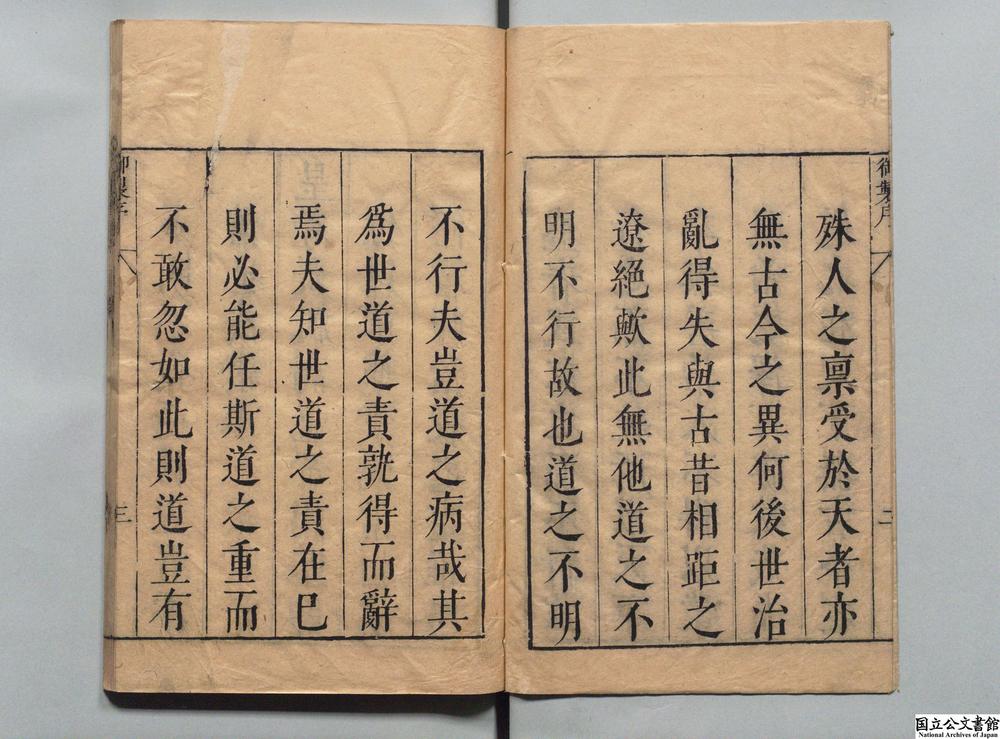 御製序
二
殊人之禀受於天者亦
無古今之異何後世治
亂得失與古昔相距之
遼絕歟此無他道之不
明不行故也道之不明
不行夫豈道之病哉其
爲世道之責孰得而辭
焉夫知世道之責在已
則必能任斯道之重而
不敢忽如此則道豈有
御製序
三
国立公文書館
National Archives of Japan